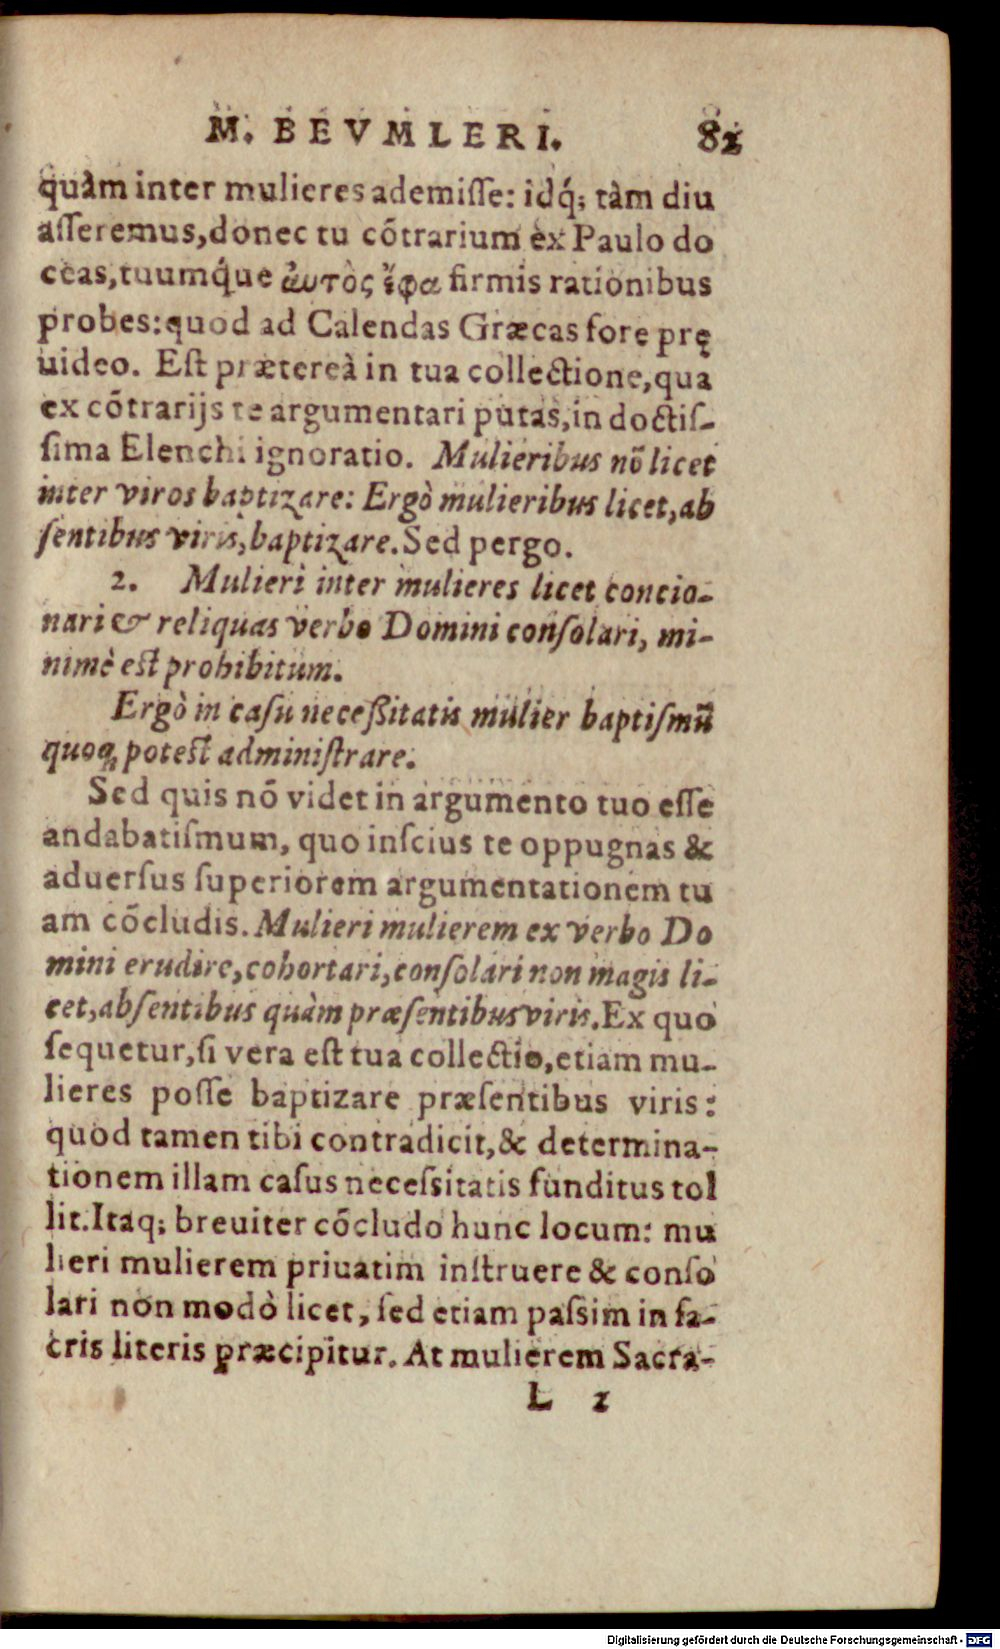 M. BEVMLERI. 82
quàm inter mulieres ademiſſe: idq́; tàm diu
aſſeremus, donec tu cõtrarium ex Paulo do
ceas, tuumq́ue ἀυτὸς ἔφα firmis rationibus
probes: quod ad Calendas Græcas fore prę
uideo. Eſt prætereà in tua collectione, qua
ex cõtrarijs te argumentari putas, in doctiſ-
ſima Elenchi ignoratio. Mulieribus nõ licet
inter viros baptizare: Ergò mulieribus licet, ab
ſentibus viris, baptizare. Sed pergo.
2. Mulieri inter mulieres licet concio-
nari & reliquas verbo Domini conſolari, mi-
nimè eſt prohibitum.
Ergò in caſu neceßitatis mulier baptiſmũ
quoq; poteſt adminiſtrare.
Sed quis nõ videt in argumento tuo eſſe
andabatiſmum, quo inſcius te oppugnas &
aduerſus ſuperiorem argumentationem tu
am cõcludis. Mulieri mulierem ex verbo Do
mini erudire, cohortari, conſolari non magis li-
cet, abſentibus quàm præſentibus viris. Ex quo
ſequetur, ſi vera eſt tua collectio, etiam mu-
lieres poſſe baptizare præſentibus viris:
quod tamen tibi contradicit, & determina-
tionem illam caſus neceſsitatis funditus tol
lit. Itaq; breuiter cõcludo hunc locum: mu
lieri mulierem priuatim inſtruere & conſo
lari non modò licet, ſed etiam paſsim in ſa-
cris literis præcipitur. At mulierem Sacra-
L 2
Digitalisierung gefördert durch die Deutsche Forschungsgemeinschaft - DFG